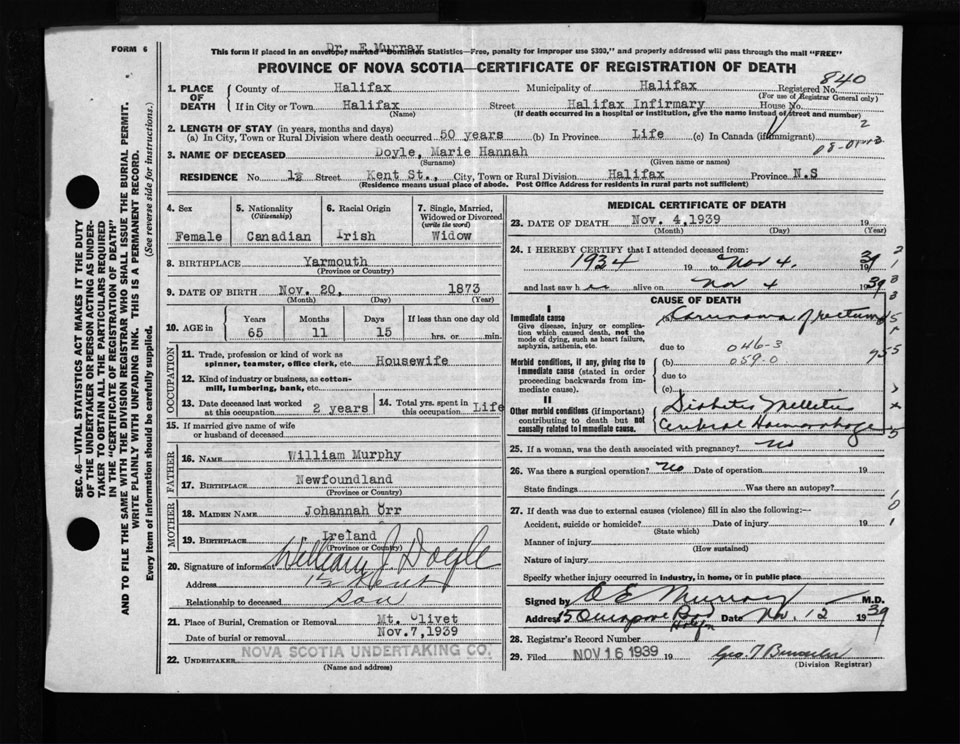 FORM 6
Dr. E Murray
This form if placed in an envelope, marked "Dominion Statistics—Free, penalty for improper use $300," and properly addressed will pass through the mail "FREE"
PROVINCE OF NOVA SCOTIA—CERTIFICATE OF REGISTRATION OF DEATH
840
1. PLACE OF DEATH
County of Halifax Municipality of Halifax Registered No.
(For use of Registrar General only)
If in City or Town Halifax Street Halifax Infirmary House No.
(Name) (If death occurred in a hospital or institution, give the name instead of street and number)
2. LENGTH OF STAY (in years, months and days)
(a) In City, Town or Rural Division where death occurred 50 years (b) In Province Life (c) In Canada (if immigrant)
3. NAME OF DECEASED Doyle, Marie Hannah
(Surname) (Given name or names)
RESIDENCE No. 1½ Street Kent St., City, Town or Rural Division Halifax Province N.S
(Residence means usual place of abode. Post Office Address for residents in rural parts not sufficient)
4. Sex 5. Nationality (Citizenship) 6. Racial Origin 7. Single, Married, Widowed or Divorced (write the word)
Female Canadian Irish Widow
8. BIRTHPLACE Yarmouth
(Province or Country)
9. DATE OF BIRTH Nov. 20, 1873
(Month) (Day) (Year)
10. AGE in Years Months Days If less than one day old
65 11 15 hrs. or min.
OCCUPATION
11. Trade, profession or kind of work as spinner, teamster, office clerk, etc. Housewife
12. Kind of industry or business, as cotton-mill, lumbering, bank, etc.
13. Date deceased last worked at this occupation 2 years
14. Total yrs. spent in this occupation Life
15. If married give name of wife or husband of deceased
FATHER
16. NAME William Murphy
17. BIRTHPLACE Newfoundland
(Province or Country)
MOTHER
18. MAIDEN NAME Johannah Orr
19. BIRTHPLACE Ireland
(Province or Country)
20. Signature of informant William J. Doyle
Address 1½ Kent
Relationship to deceased Son
21. Place of Burial, Cremation or Removal Mt. Olivet
Date of burial or removal Nov.7,1939
22. UNDERTAKER NOVA SCOTIA UNDERTAKING CO.
(Name and address)
MEDICAL CERTIFICATE OF DEATH
23. DATE OF DEATH Nov. 4,1939 19
(Month) (Day) (Year)
24. I HEREBY CERTIFY that I attended deceased from:
1934 19 to Nov 4. 1939
and last saw her alive on Nov 4 1939
CAUSE OF DEATH
I
Immediate cause
Give disease, injury or complication which caused death, not the mode of dying, such as heart failure, asphyxia, asthenia, etc.
Carcinoma of rectum
due to 046-3
Morbid conditions, if any, giving rise to immediate cause (stated in order proceeding backwards from immediate cause).
(b) 059.0
due to
(c)
II
Other morbid conditions (if important) contributing to death but not causally related to immediate cause.
Diabetes Mellitus
Cerebral Haemorrhage
25. If a woman, was the death associated with pregnancy? No
26. Was there a surgical operation? No Date of operation 19
State findings Was there an autopsy?
27. If death was due to external causes (violence) fill in also the following:—
Accident, suicide or homicide? Date of injury 19
(State which)
Manner of injury
(How sustained)
Nature of injury
Specify whether injury occurred in industry, in home, or in public place
Signed by O E Murray M.D.
Address Halifax Date Nov. 12 1939
28. Registrar's Record Number
29. Filed NOV 16 1939 19
(Division Registrar)
SEC. 46—VITAL STATISTICS ACT MAKES IT THE DUTY
OF THE UNDERTAKER OR PERSON ACTING AS UNDER-
TAKER TO OBTAIN ALL THE PARTICULARS REQUIRED
IN THE "CERTIFICATE OF REGISTRATION OF DEATH"
AND TO FILE THE SAME WITH THE DIVISION REGISTRAR WHO SHALL ISSUE THE BURIAL PERMIT.
WRITE PLAINLY WITH UNFADING INK. THIS IS A PERMANENT RECORD.
Every item of information should be carefully supplied. (See reverse side for instructions.)